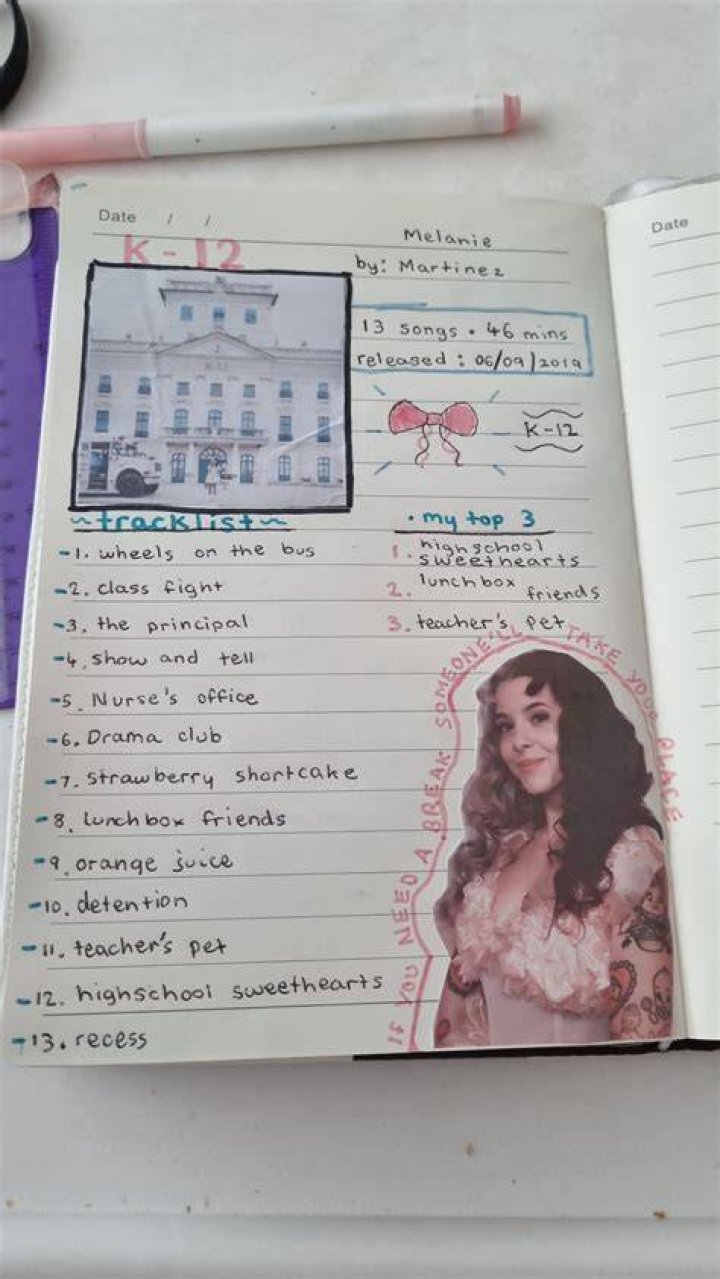 Date / /
Date
K-12
Melanie
by: Martinez
13 songs • 46 mins
released: 06/09/2019
K-12
~tracklist~
-1. wheels on the bus
-2. class fight
-3. the principal
-4. show and tell
-5. Nurse's office
-6. Drama club
-7. strawberry shortcake
-8. lunchbox friends
-9. orange juice
-10. detention
-11. teacher's pet
-12. highschool sweethearts
-13. recess
• my top 3
1. highschool
sweethearts
2. lunchbox friends
3. teacher's pet
IF YOU NEED A BREAK SOMEONE'LL TAKE YOUR PLACE